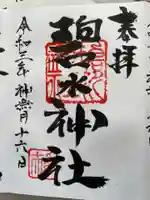 奉拝
碧水神社
令和二年神無月十六日